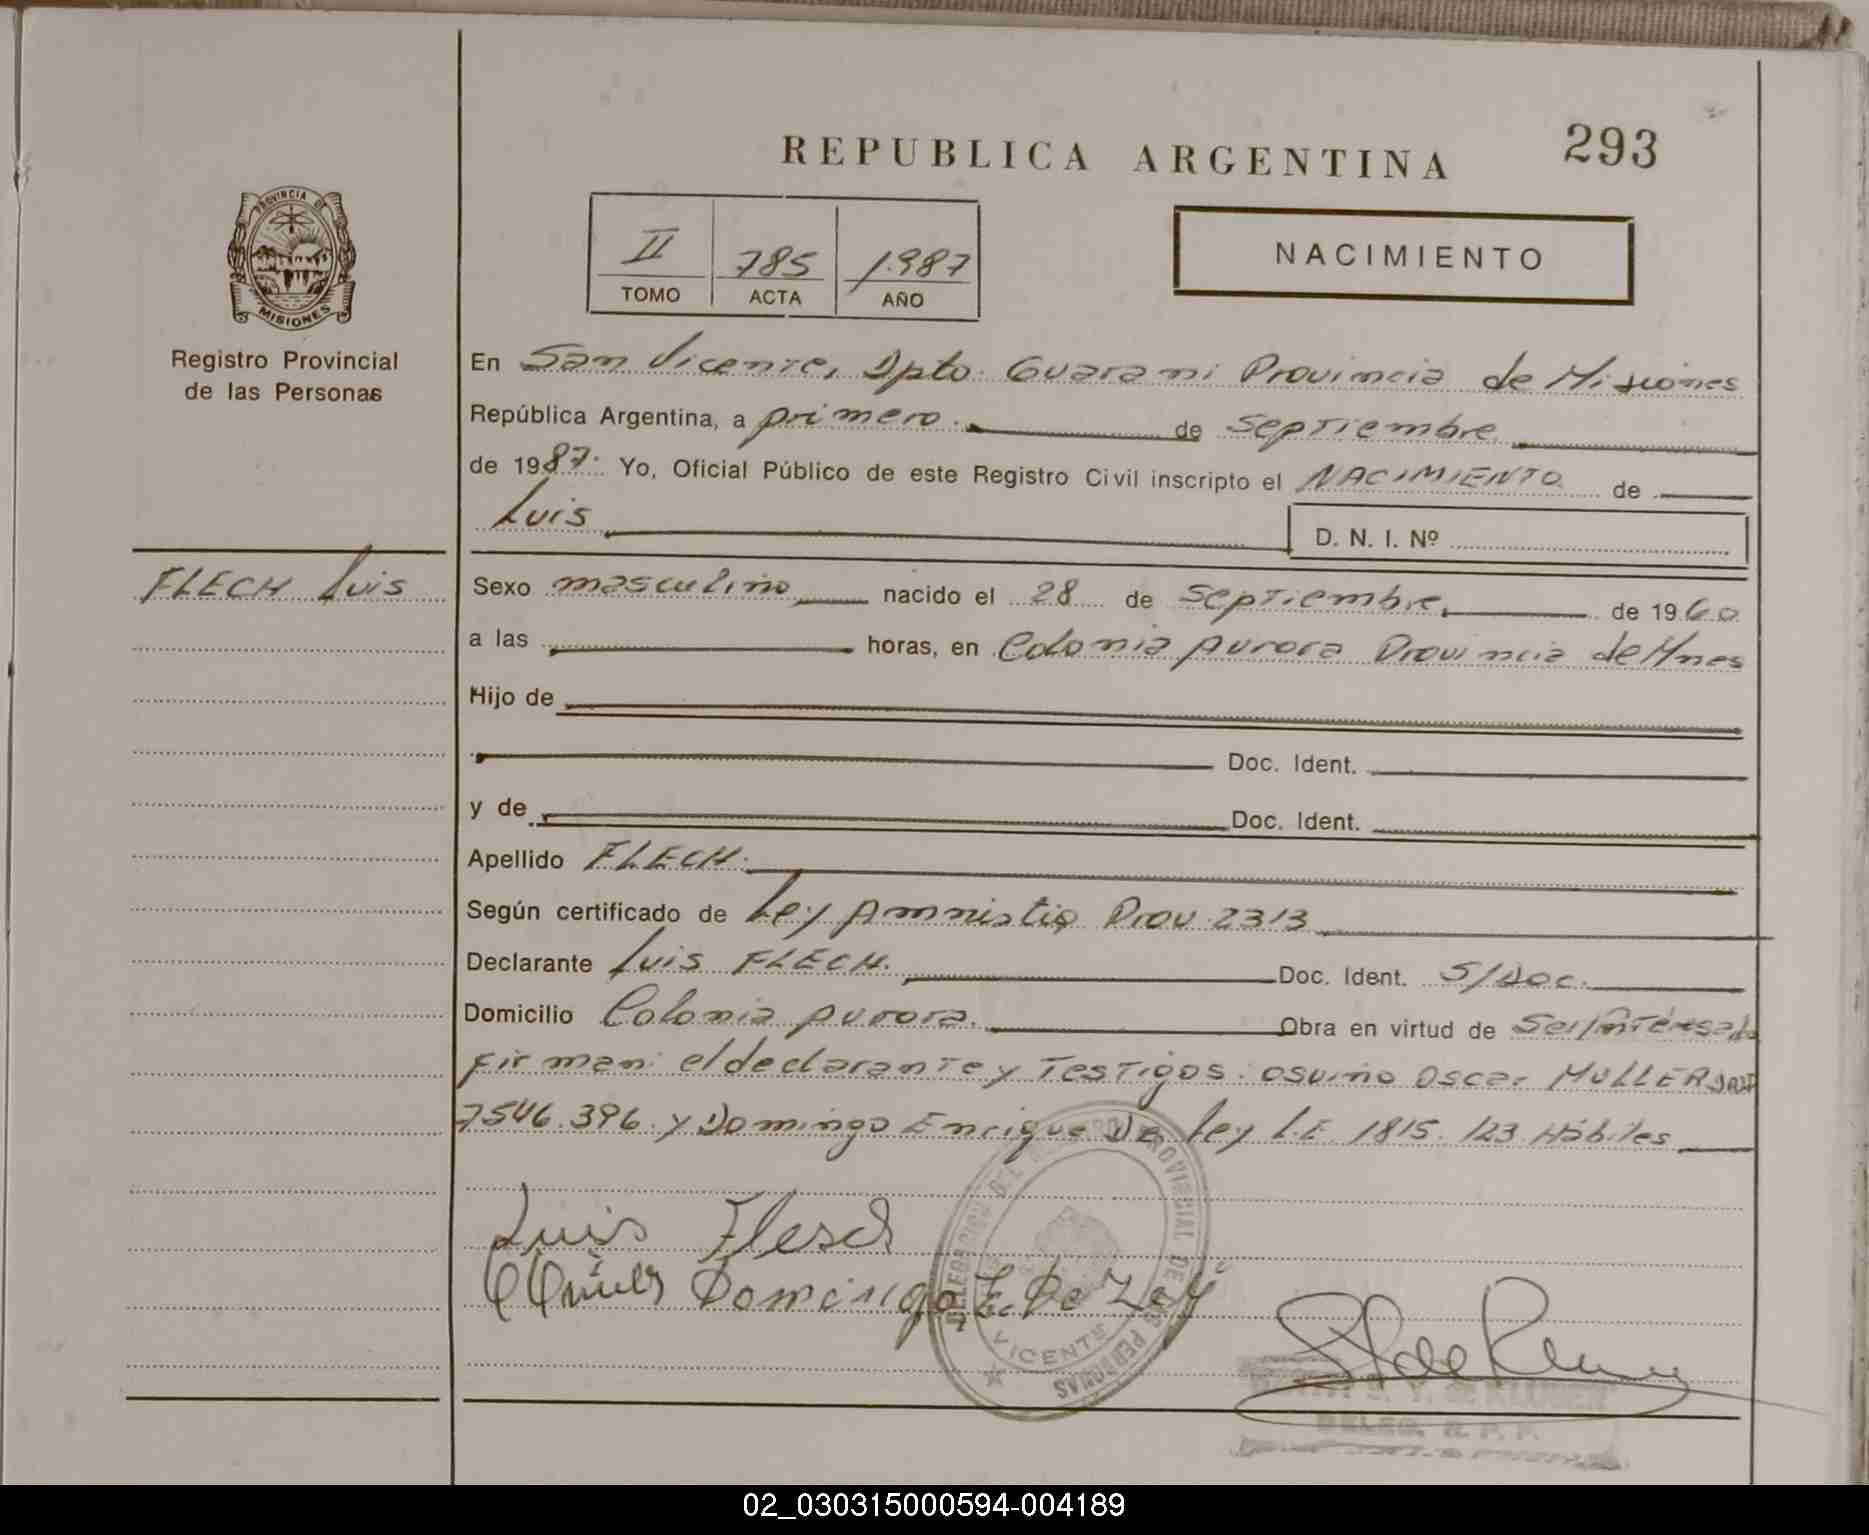 REPUBLICA ARGENTINA
293
PROVINCIA DE
MISIONES
Registro Provincial
de las Personas
II 785 1.987
TOMO ACTA AÑO
NACIMIENTO
En San Vicente, Dpto. Guarani Provincia de Misiones
República Argentina, a primero. de septiembre
de 1987. Yo, Oficial Público de este Registro Civil inscripto el NACIMIENTO de
Luis
D. N. I. Nº
FLECH Luis
Sexo masculino nacido el 28 de septiembre de 1960
a las horas, en Colonia Aurora Provincia de Mnes
Hijo de
Doc. Ident.
y de Doc. Ident.
Apellido FLECH.
Según certificado de Ley Amnistia Prov 2313
Declarante Luis FLECH. Doc. Ident. S/doc.
Domicilio Colonia Aurora. Obra en virtud de Ser/interesado
Firman: el declarante y Testigos: Osvino Oscar MULLER
7546.396. y Domingo Enrique De Ley L.E 1815.123 Hábiles
Luis Flesch
Domingo E. De Ley
DELEGACION DEL REGISTRO PROVINCIAL DE LAS PERSONAS
VICENTE
DELEG. R. P. P.
02_030315000594-004189